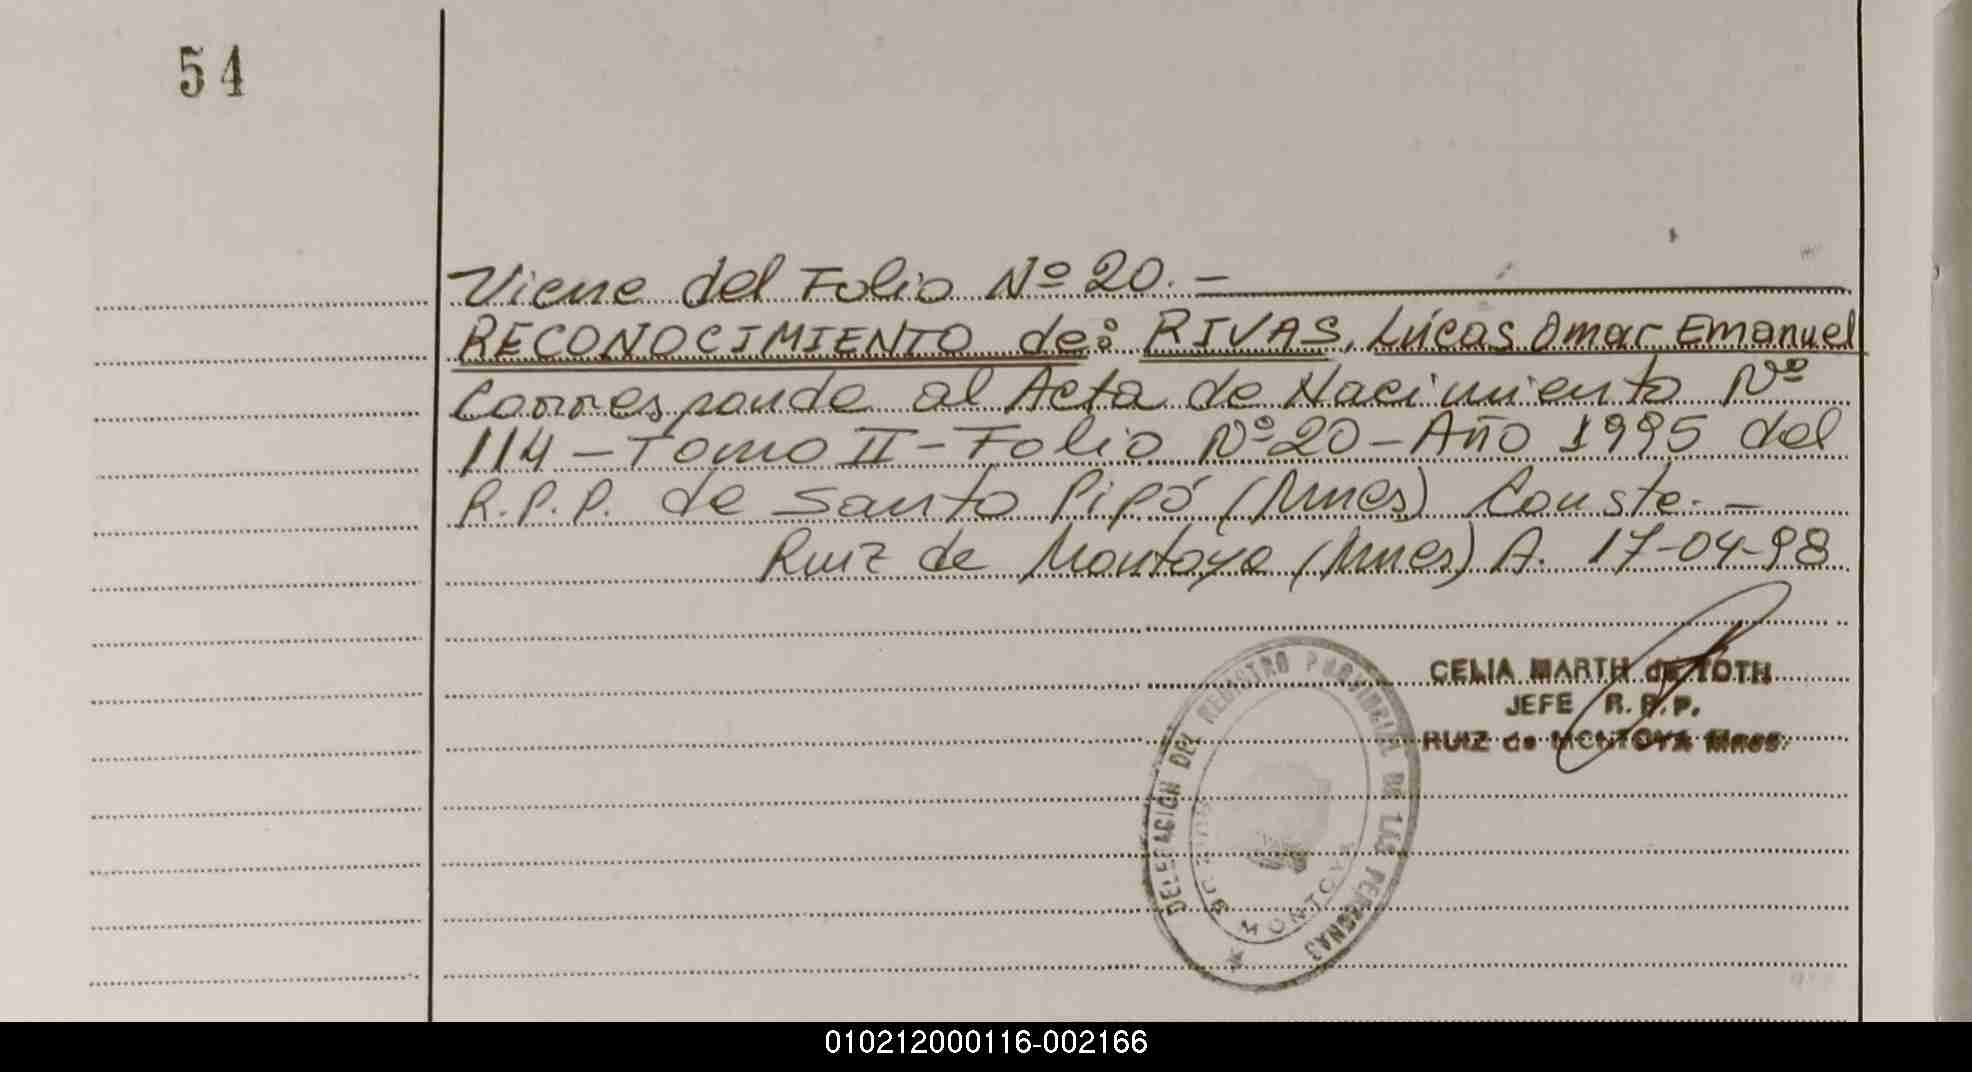 54
Viene del Folio Nº 20. —
RECONOCIMIENTO de: RIVAS, Lucas Omar Emanuel
Corresponde al Acta de Nacimiento Nº
114 — Tomo II — Folio Nº 20 — Año 1995 del
R.P.P. de Santo Pipó (Mnes) Conste. —
Ruiz de Montoya (Mnes) A. 17-04-98
CELIA MARTH de TOTH
JEFE R.P.P.
RUIZ de MONTOYA Mnes.
DELEGACION DEL REGISTRO PROVINCIAL DE LAS PERSONAS
MONTOYA
010212000116-002166